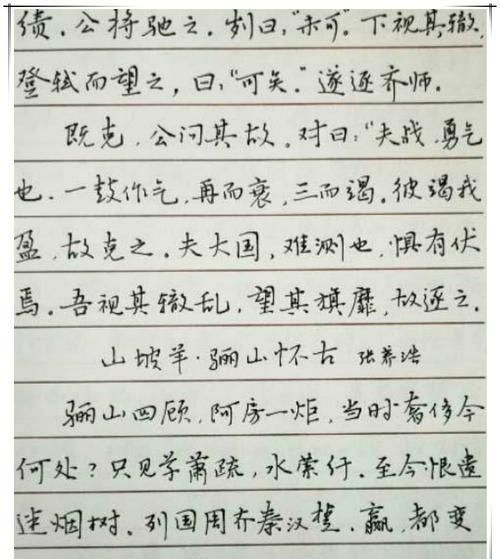 绩。公将驰之。刿曰:“未可”。下视其辙,
登轼而望之,曰:“可矣。”遂逐齐师。
既克,公问其故。对曰:“夫战,勇气
也。一鼓作气,再而衰,三而竭。彼竭我
盈,故克之。夫大国,难测也,惧有伏
焉。吾视其辙乱,望其旗靡,故逐之。
山坡羊·骊山怀古 张养浩
骊山四顾,阿房一炬,当时奢侈今
何处?只见草萧疏,水萦纡。至今恨遗
迷烟树。列国周齐秦汉楚,赢,都变